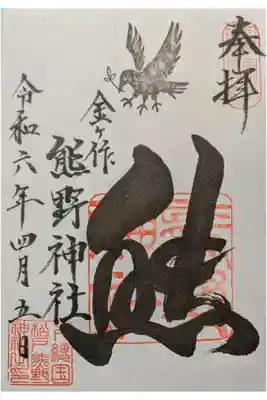 奉拝
熊
金ヶ作
熊野神社
令和六年四月五日